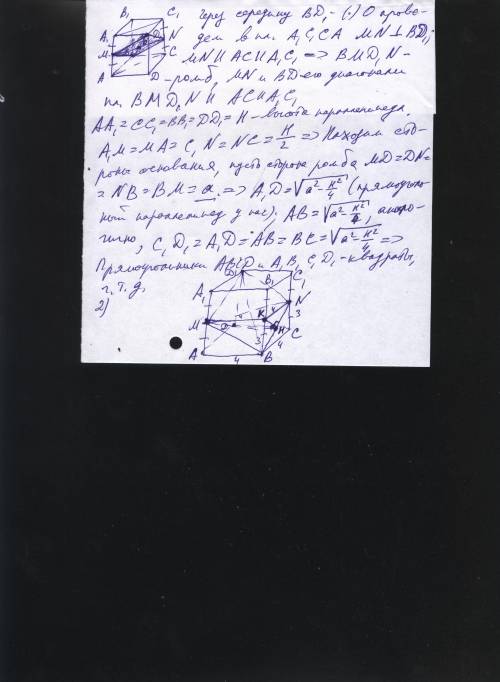 B₁ C₁ Через середину BD₁ - (·) O прове-
A₁ D₁ N дем в пл. A₁C₁CA MN ⊥ BD₁;
M C MN || AC || A₁C₁ => BMD₁N -
A D - ромб, MN и BD - его диагонали
пл. BMD₁N || AC || A₁C₁
AA₁ = CC₁ = BB₁ = DD₁ = H - высота параллепипеда.
A₁M = MA = C₁N = NC = H/2 => Находим сто-
роны основания, пусть сторона ромба MD = DN =
= NB = BM = a. => A₁D = √(a² - H²/4) (прямоуголь-
ный параллепипед у нас); AB = √(a² - H²/4), анало-
гично, C₁D₁ = A₁D = AB = BC = √(a² - H²/4) =>
Прямоугольники ABCD и A₁B₁C₁D₁ - квадраты,
ч.т.д.
2)
D₁ C₁
A₁ B₁
N
M K 4 3
O H C
3 4
A 4 B